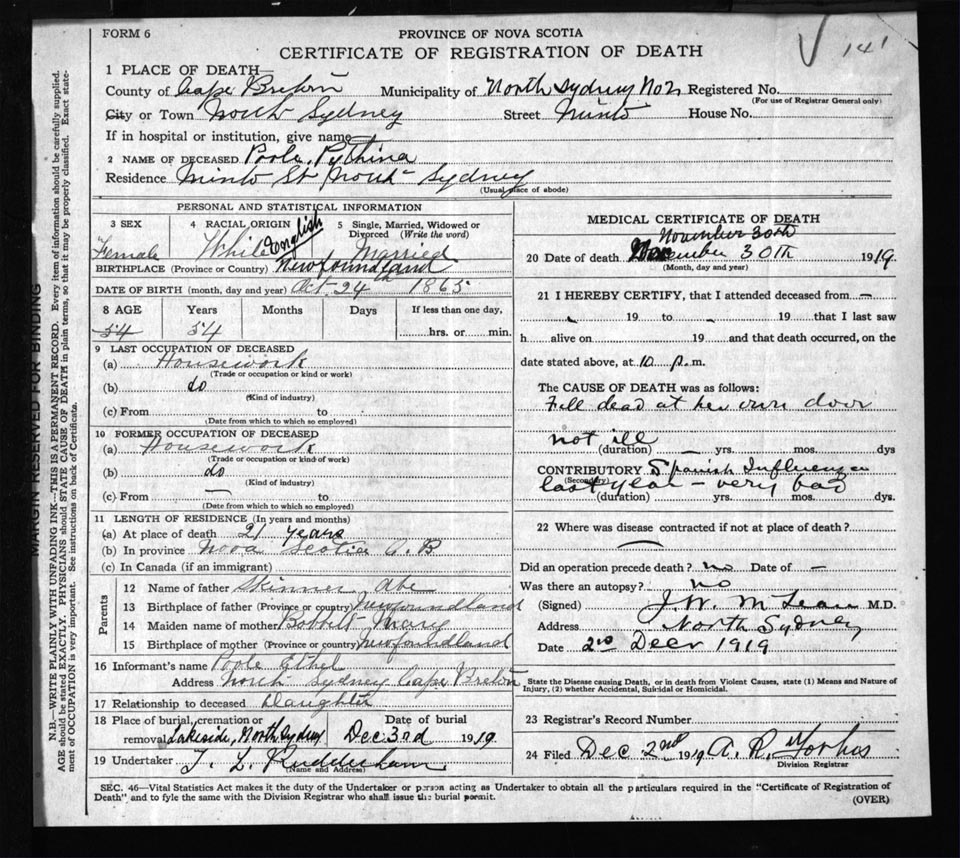 FORM 6
PROVINCE OF NOVA SCOTIA
CERTIFICATE OF REGISTRATION OF DEATH
141
1 PLACE OF DEATH—
County of Cape Breton Municipality of North Sydney No 2 Registered No.
(For use of Registrar General only)
City or Town North Sydney Street Minto House No.
If in hospital or institution, give name
2 NAME OF DECEASED Poole, Pythina
Residence Minto St North Sydney
(Usual place of abode)
PERSONAL AND STATISTICAL INFORMATION
3 SEX 4 RACIAL ORIGIN 5 Single, Married, Widowed or Divorced (Write the word)
Female White English Married
BIRTHPLACE (Province or Country) Newfoundland
DATE OF BIRTH (month, day and year) Oct 24th 1865
8 AGE Years Months Days If less than one day,
54 54 hrs. or min.
9 LAST OCCUPATION OF DECEASED
(a) Housework
(Trade or occupation or kind or work)
(b) do
(Kind of industry)
(c) From to
(Date from which to which so employed)
10 FORMER OCCUPATION OF DECEASED
(a) Housework
(Trade or occupation or kind of work)
(b) do
(Kind of industry)
(c) From — to
(Date from which to which so employed)
11 LENGTH OF RESIDENCE (In years and months)
(a) At place of death 21 years
(b) In province Nova Scotia C.B
(c) In Canada (if an immigrant)
Parents
12 Name of father Skinner Abe
13 Birthplace of father (Province or country) Newfoundland
14 Maiden name of mother Bobbett Mery
15 Birthplace of mother (Province or country) Newfoundland
16 Informant's name Poole Ethel
Address North Sydney Cape Breton
17 Relationship to deceased Daughter
18 Place of burial, cremation or Date of burial
removal Lakeside, North Sydney Dec 3rd 1919
19 Undertaker T. L. Rudderham
(Name and Address)
MEDICAL CERTIFICATE OF DEATH
November 30th
20 Date of death November 30TH 1919
(Month, day and year)
21 I HEREBY CERTIFY, that I attended deceased from —
19 to 19 that I last saw
h alive on 19 and that death occurred, on the
date stated above, at 10 p. m.
The CAUSE OF DEATH was as follows:
Fell dead at her own door
not ill
(duration) — yrs. mos. dys
CONTRIBUTORY Spanish Influenza
(Secondary)
last year — very bad
(duration) yrs. mos. dys.
22 Where was disease contracted if not at place of death?
Did an operation precede death? no Date of —
Was there an autopsy? no
(Signed) J. W. McLean M.D.
Address North Sydney
Date 2nd Decr 1919
State the Disease causing Death, or in death from Violent Causes, state (1) Means and Nature of
Injury, (2) whether Accidental, Suicidal or Homicidal.
23 Registrar's Record Number
24 Filed Dec 2nd 1919 A. R. Forbes
Division Registrar
SEC. 46—Vital Statistics Act makes it the duty of the Undertaker or person acting as Undertaker to obtain all the particulars required in the "Certificate of Registration of
Death" and to fyle the same with the Division Registrar who shall issue the burial permit.
(OVER)
MARGIN RESERVED FOR BINDING
N.B.—WRITE PLAINLY WITH UNFADING INK—THIS IS A PERMANENT RECORD. Every item of information should be carefully supplied.
AGE should be stated EXACTLY. PHYSICIANS should STATE CAUSE OF DEATH in plain terms, so that it may be properly classified. Exact state-
ment of OCCUPATION is very important. See instructions on back of Certificate.